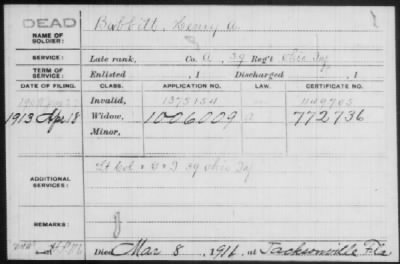 DEAD
NAME OF SOLDIER:
Babbitt, Henry A.
SERVICE:
Late rank, Co. A, 39 Reg't Ohio Inf
TERM OF SERVICE:
Enlisted , 1 Discharged , 1
DATE OF FILING. CLASS. APPLICATION NO. LAW. CERTIFICATE NO.
Invalid, 1375154
1913 Apr 18 Widow, 1006009 772736
Minor,
ADDITIONAL SERVICES:
39 Ohio Inf
REMARKS:
Died Mar 8, 1911, at Jacksonville Fla